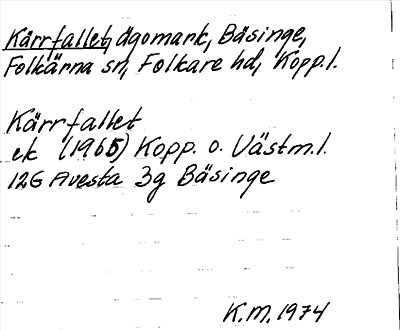 Kärrfallet, ägomark, Bäsinge,
Folkärna sn, Folkare hd, Kopp.l.
Kärrfallet
ek (1965) Kopp. o. Västm.l.
12G Avesta 3g Bäsinge
K.M. 1974